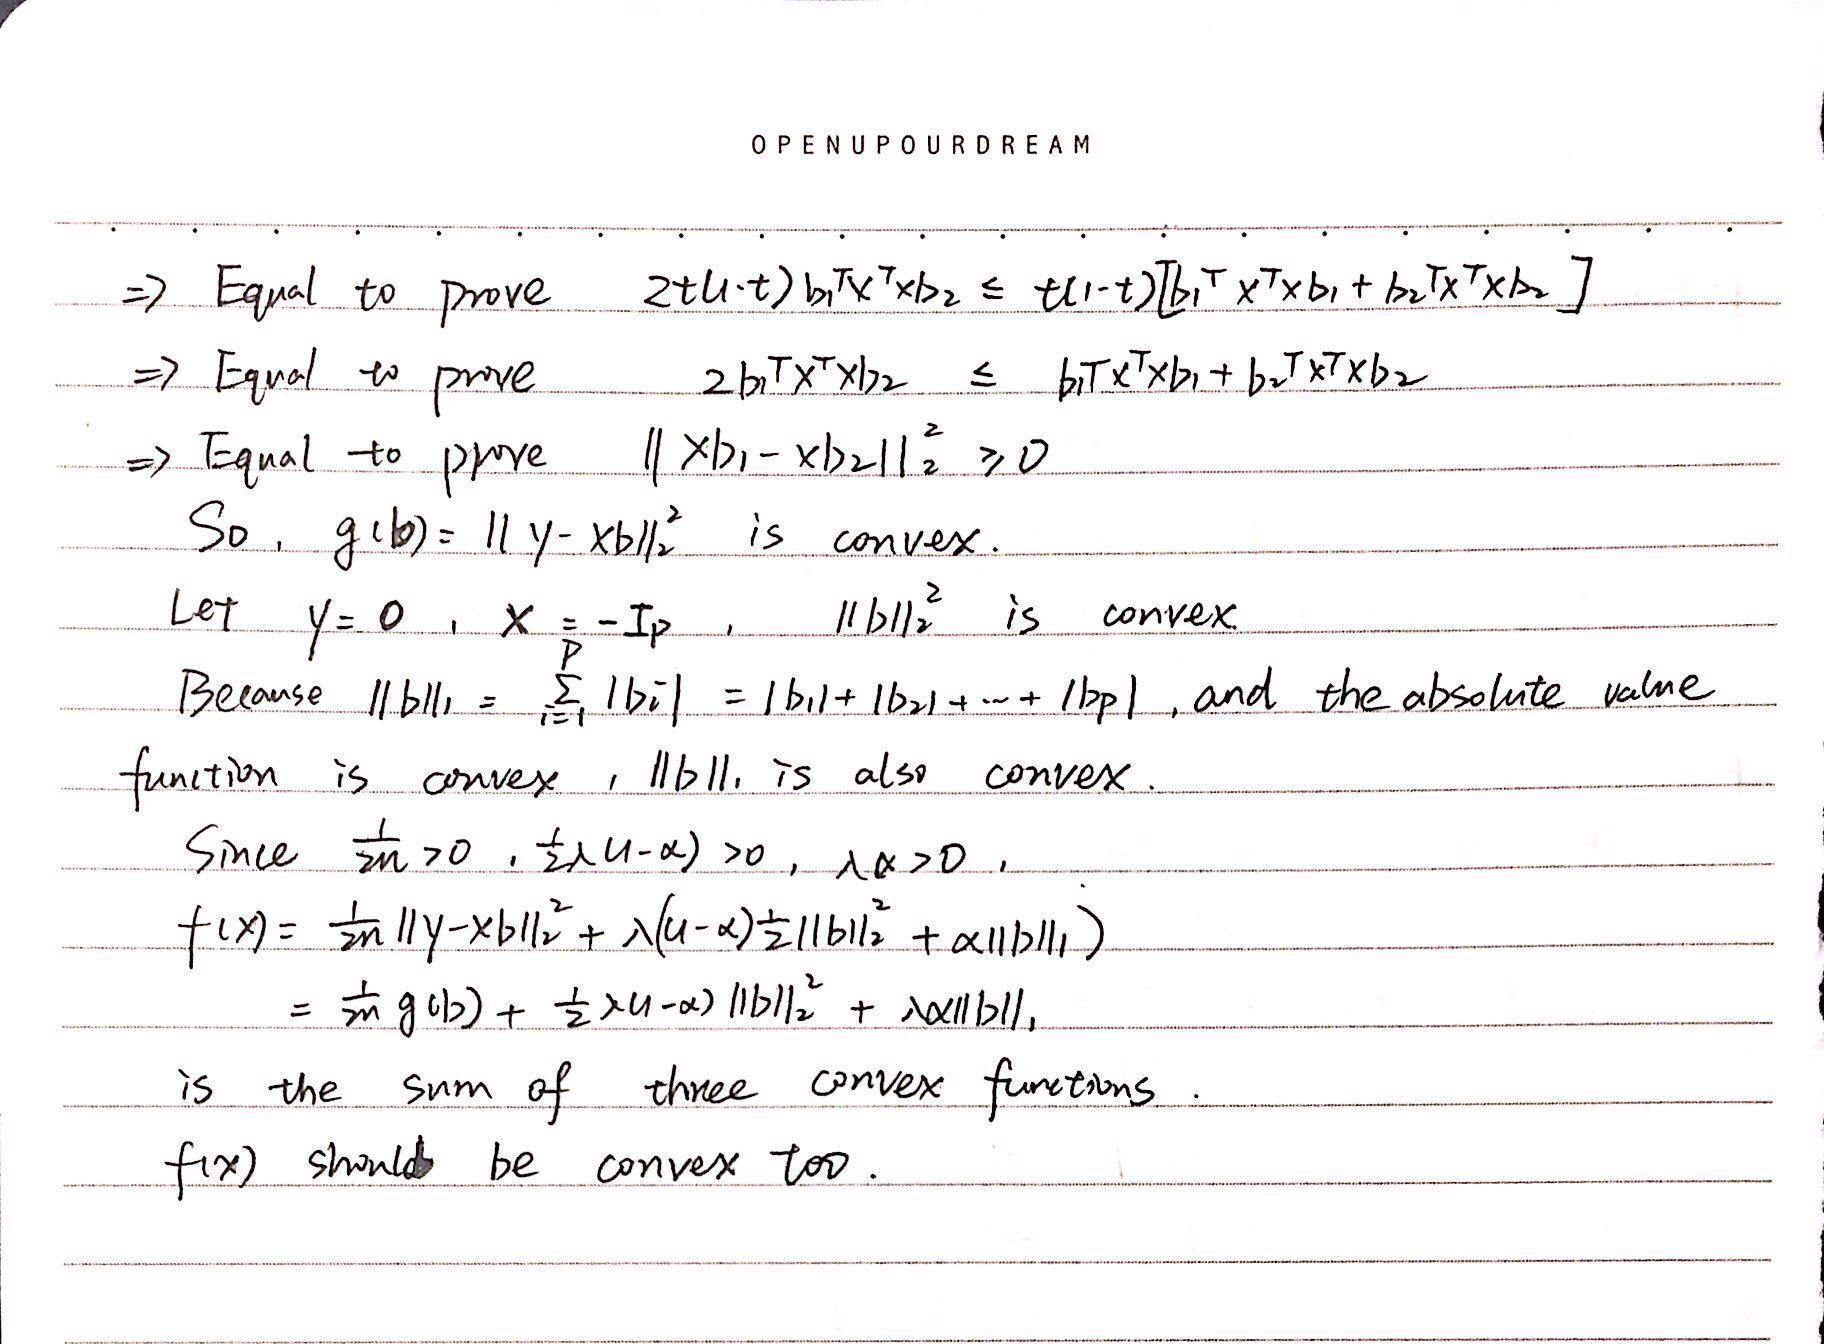 OPENUPOURDREAM
⇒ Equal to prove 2t(1-t) b₁ᵀXᵀXb₂ ≤ t(1-t)[b₁ᵀXᵀXb₁ + b₂ᵀXᵀXb₂]
⇒ Equal to prove 2b₁ᵀXᵀXb₂ ≤ b₁ᵀXᵀXb₁ + b₂ᵀXᵀXb₂
⇒ Equal to prove ||Xb₁ - Xb₂||₂² ≥ 0
So, g(b) = ||y - Xb||₂² is convex.
Let y = 0, X = -Ip, ||b||₂² is convex.
Because ||b||₁ = Σᵢ₌₁ᵖ |bi| = |b₁| + |b₂| + ... + |bp|, and the absolute value
function is convex, ||b||₁ is also convex.
Since 1/2n > 0, 1/2 λ(1-α) > 0, λα > 0,
f(x) = 1/2n ||y - Xb||₂² + λ((1-α) 1/2 ||b||₂² + α||b||₁)
= 1/2n g(b) + 1/2 λ(1-α) ||b||₂² + λα||b||₁
is the sum of three convex functions.
f(x) should be convex too.